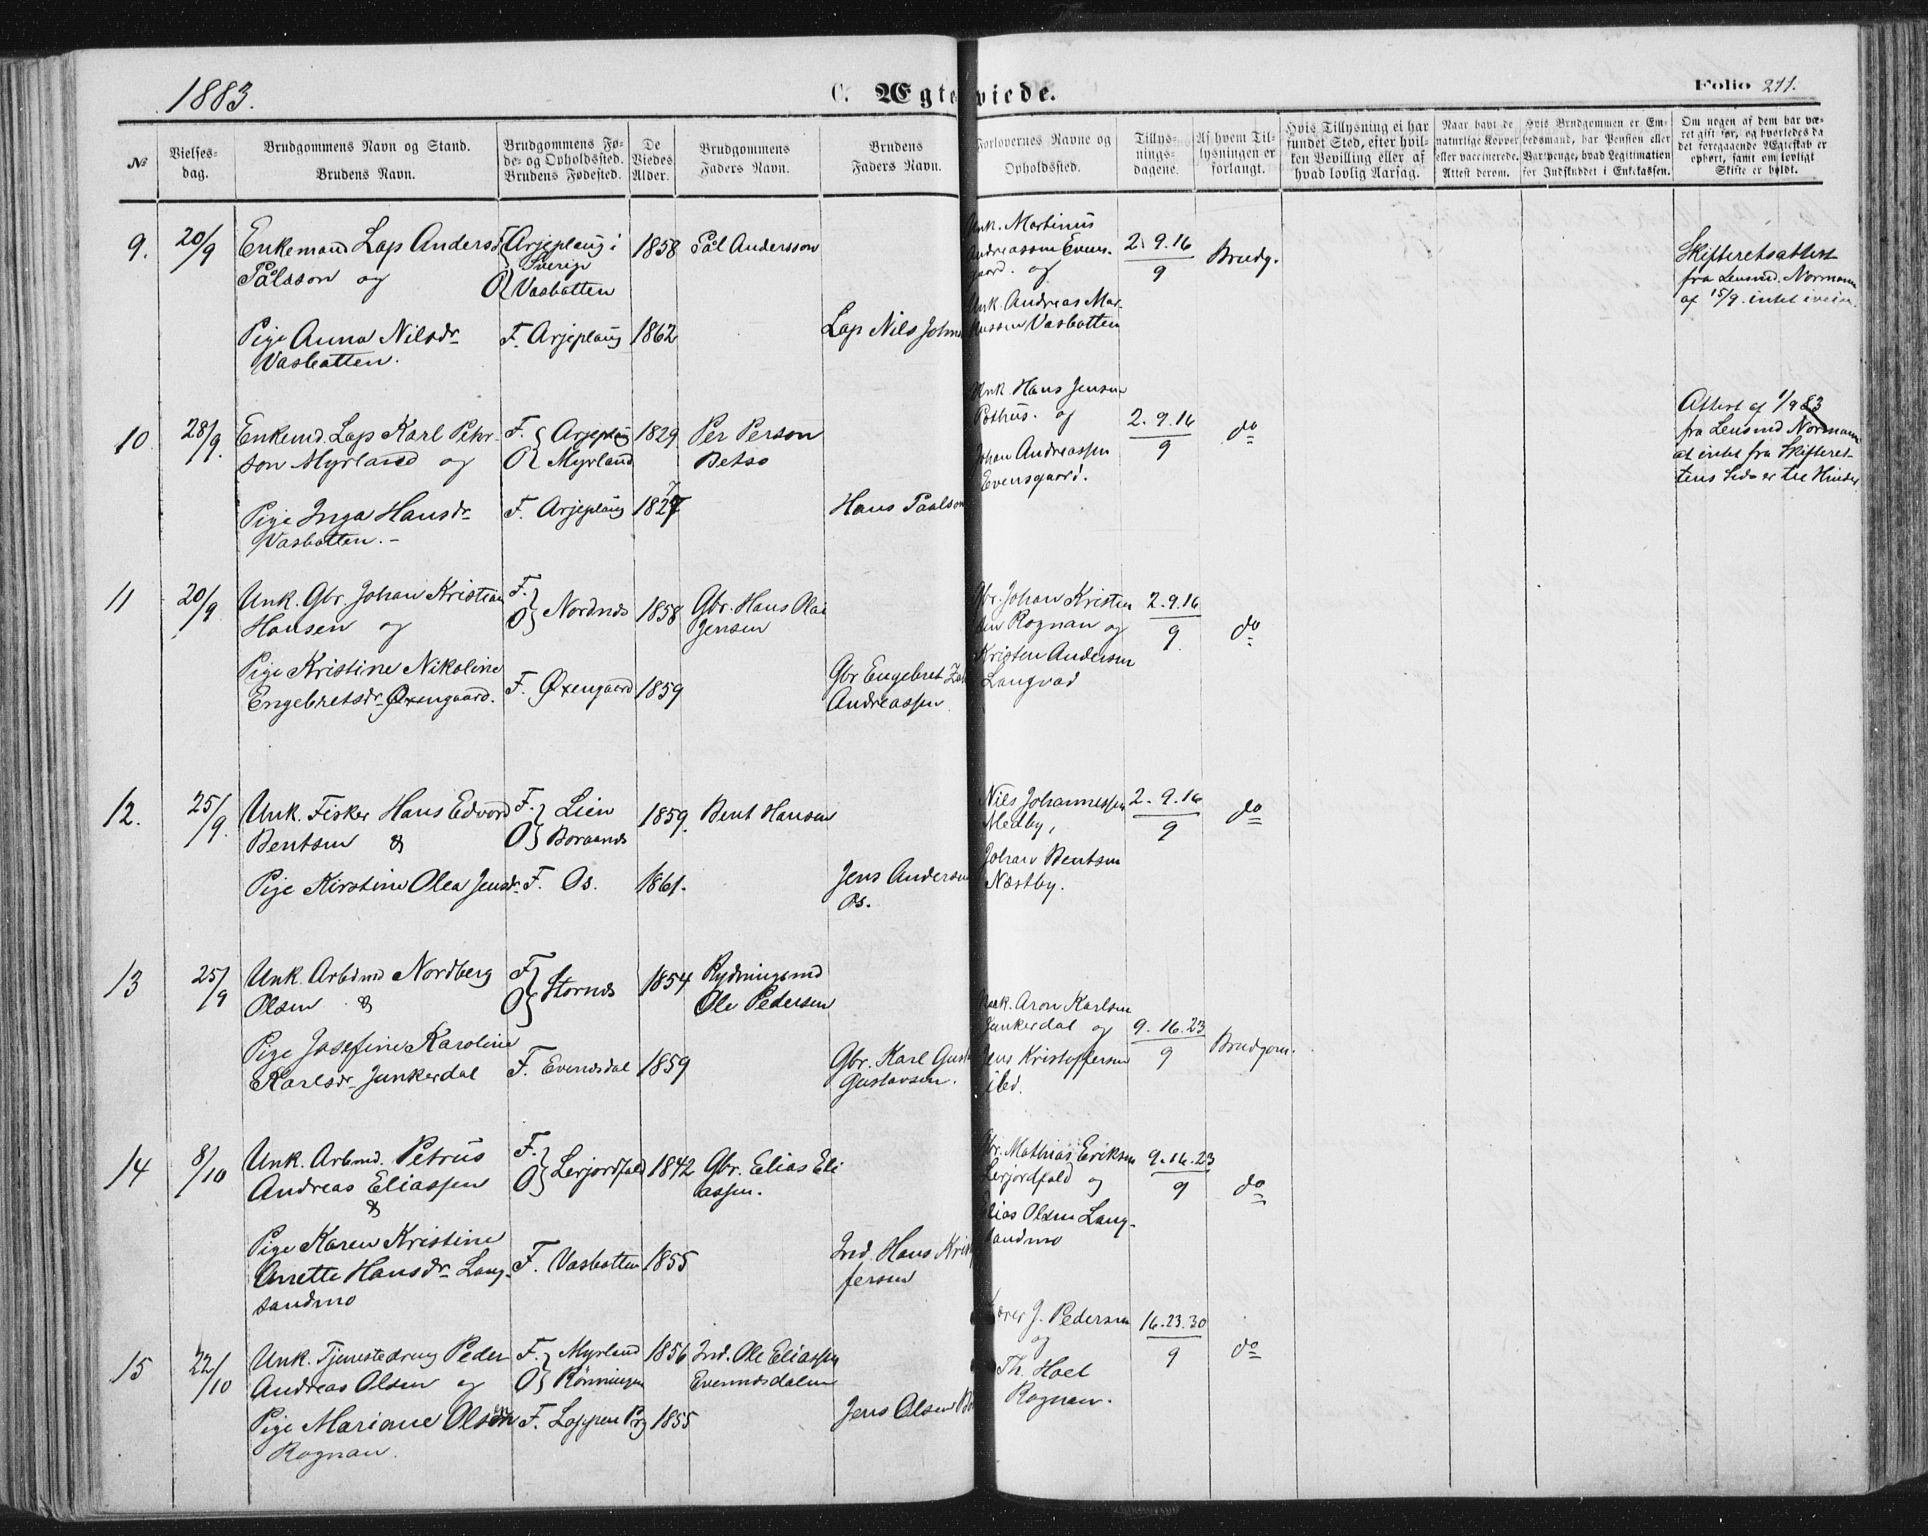 1883.
C. Ægteviede.
Folio 211.
№
Vielses-
dag.
Brudgommens Navn og Stand.
Brudens Navn.
Brudgommens Fø-
de- og Opholdssted.
Brudens Fødested.
De
Viedes
Alder.
Brudgommens
Faders Navn.
Brudens
Faders Navn.
Forlovernes Navne og
Opholdssted.
Tillys-
nings-
dagene.
Af hvem Til-
lysningen er
forlangt.
Hvis Tillysning ei har
fundet Sted, efter hvil-
ken Bevilling eller af
hvad lovlig Aarsag.
Naar havt de
naturlige Kopper
eller vaccinerede.
Attest derom.
Hvis Brudgommen er Em-
bedsmand, har Pension eller
Vartpenge, hvad Legitimation
for Indskuddet i Enkekassen.
Om nogen af dem har væ-
ret gift før, og hvorledes da
det foregaaende Ægteskab er
ophørt, samt om lovligt
Skifte er holdt.
9. 20/9 Enkemand Lap Anders
Pålsson og
Arjeplaug i
Sverige
O Vasbotten
1858 Pål Andersson
Unk. Martinus
Andreassen Evens-
gaard. og
Unk. Andreas Mar-
kussen Vasbotten
2.9.16/9 Brudg.
Skifteretsattest
fra Lensmd. Normann
af 15/9. intet iveien.
Pige Anna Nilsdr
Vasbotten.
F. Arjeplaug 1862
Lap Nils Johns
10 28/9. Enkemd. Lap Karl Pehr-
son Myrland og
F. Arjeplaug
O Myrland
1829 Per Person
Betso
Unk. Hans Jensen
Pothus. og
Johan Andreassen
Evensgaard.
2.9.16/9 do
Attest af 1/9 83
fra Lensmd Normann
at intet fra Skifteret-
tens Side er til Hinder
Pige Inga Hansdr
Vasbotten.-
F. Arjeplaug 1827
Hans Paalson
11 20/9 Unk. Gbr. Johan Kristian
Hansen og
F.
O Nordnæs
1858 Gbr. Hans Olai
Jensen
Gbr. Johan Kristen
sen Rognan og
Kristen Andersen
Langvad
2.9.16/9. do
Pige Kristine Nikoline
Engebretsdr Øxengaard.
F. Øxengaard 1859
Gbr Engebret
Andreassen
12. 25/9. Unk. Fisker Hans Edvard
Bentsen &
F. Lien
O Boraanes
1859. Bent Hansen
Nils Johannessen
Medby,
Johan Bentsen
Næstby.
2.9.16/9 do
Pige Kirstine Olea Jensdr F. Os. 1861.
Jens Andersen
Os.
13 25/9 Unk. Arbdmd Nordberg
Olsen &
F
O Stornæs
1854 Rydningsmd
Ole Pedersen
Unk. Aron Karlsen
Junkerdal og
Jens Kristoffersen
ibd.
9.16.23/9 Brudgom.
Pige Josefine Karoline
Karlsdr Junkerdal
F. Evensdal 1859
Gbr. Karl Gust
Gustavsen.
14 8/10 Unk. Arbmd. Petrus
Andreas Eliassen
&
F.
O Lerjordfald
1842 Gbr. Elias Eli
assen.
Gbr. Mathias Eriksen
Lerjordfald og
Elias Olsen Lang-
sandmo
9.16.23/9 do
Pige Karen Kristine
Anette Hansdr Lang-
sandmo
F. Vasbotten 1855
Ind. Hans Krist
fersen
15 22/10 Unk. Tjenestedreng Peder
Andreas Olsen og
F. Myrland
O Rønningen
1856 Ind. Ole Eliassen
Evennesdalen
J. Pedersen
og
Th. Hoel
Rognan.
16.23.30/9 do
Pige Mariane Olsen
Rognan.
F. Loppen Prg 1855
Jens Olsen